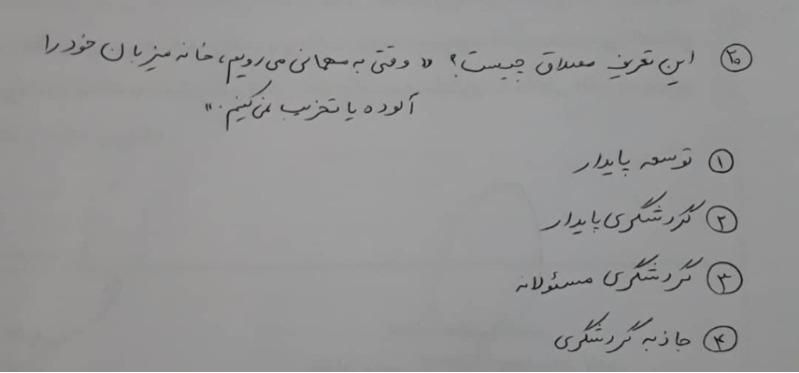 ۲۰ این تعریف مصداق چیست؟ « وقتی به مهمانی می‌رویم، خانه میزبان خود را
آلوده یا تخریب نمی‌کنیم. »
۱ توسعه پایدار
۲ گردشگری پایدار
۳ گردشگری مسئولانه
۴ جاذبه گردشگری